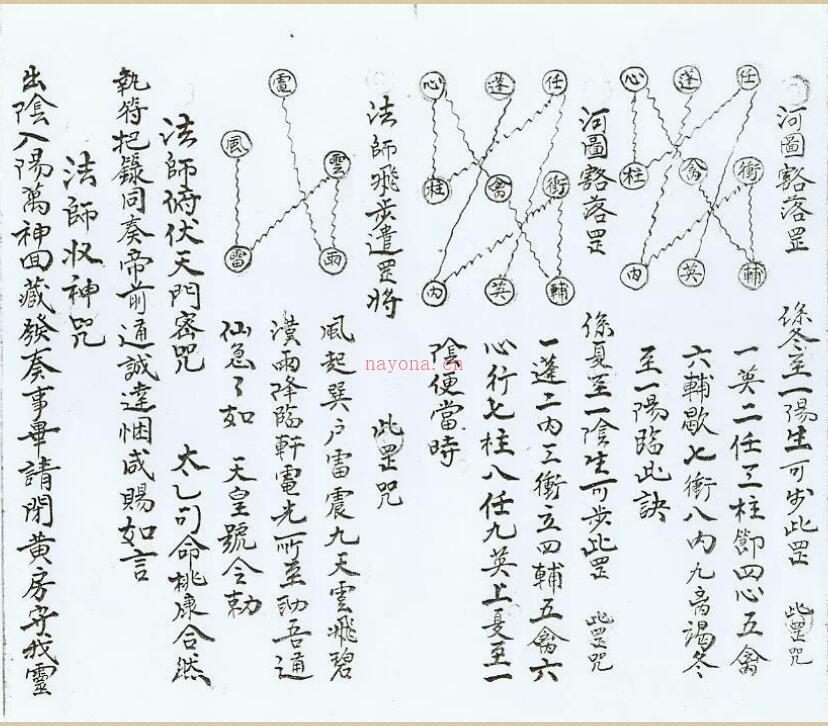 河圖豁落罡
係冬至一陽生可步此罡 此罡咒
一英二任三柱節四心五禽
六輔歇七衝八內九離謁冬
至一陽臨此訣
任 蓬 心
衝 禽 柱
輔 英 內
河圖豁落罡
係夏至一陰生可步此罡 此罡咒
一蓬二內三衝立四輔五禽六
心行七柱八任九英上夏至一
陰便當時
任 蓬 心
衝 禽 柱
輔 英 內
法師飛步遣罡將
此罡咒
風起巽户雷震九天雲飛碧
漢雨降臨軒電光所至助吾通
仙急々如 天皇號令勅
電
雲 風
雨 雷
法師俯伏天門密咒
太乙司命桃康合然
執符把籙同奏帝前通誠達悃咸賜如言
法師收神咒
出陰入陽萬神回藏發奏事畢請閉黄房守我靈
nayona.cn